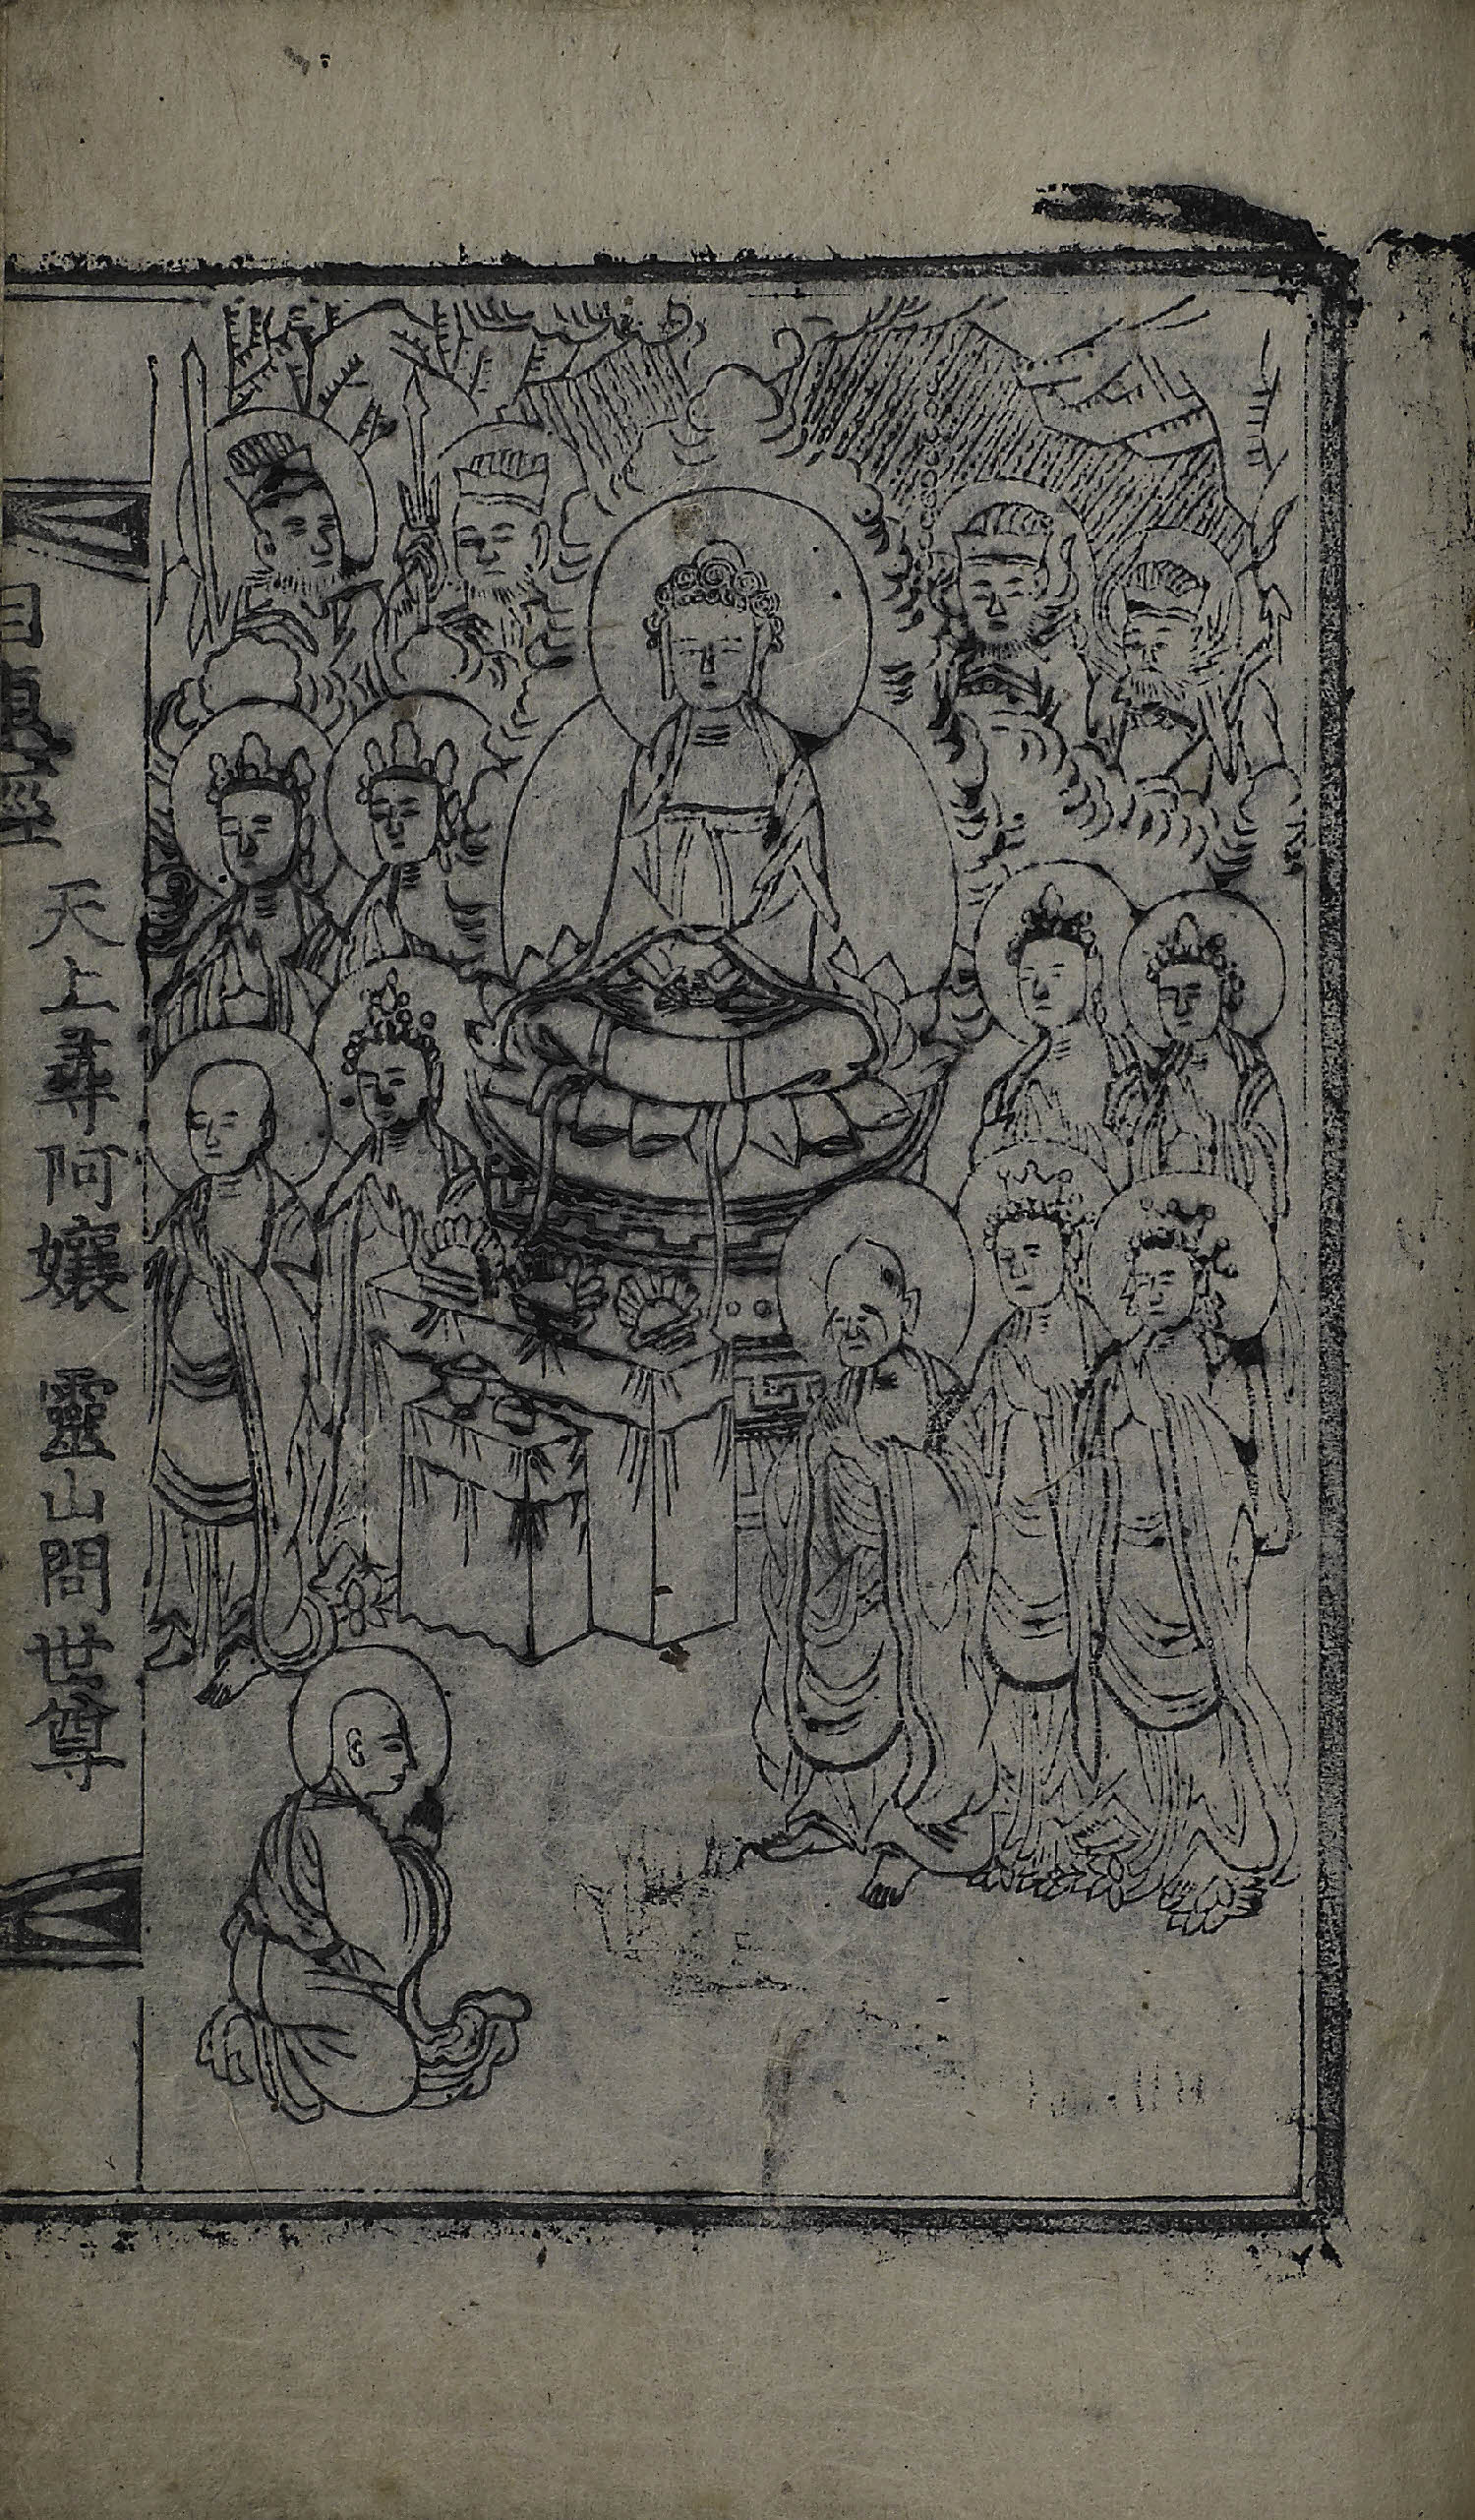 目連經
天上尋阿孃　靈山問世尊